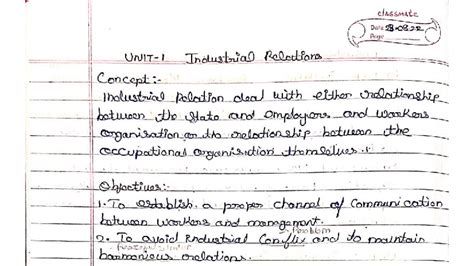 classmate
Date 23-08-22
Page
UNIT-1 Industrial Relations
Concept:-
Industrial Relation deal with either relationship
between the state and employers and workers
organisation or the relationship between the
occupational organisation themselves.
Objectives:-
1. To establish a proper channel of communication
between workers and management.
Problem
2. To avoid Industrial Conflix and to maintain
harmonious relations.